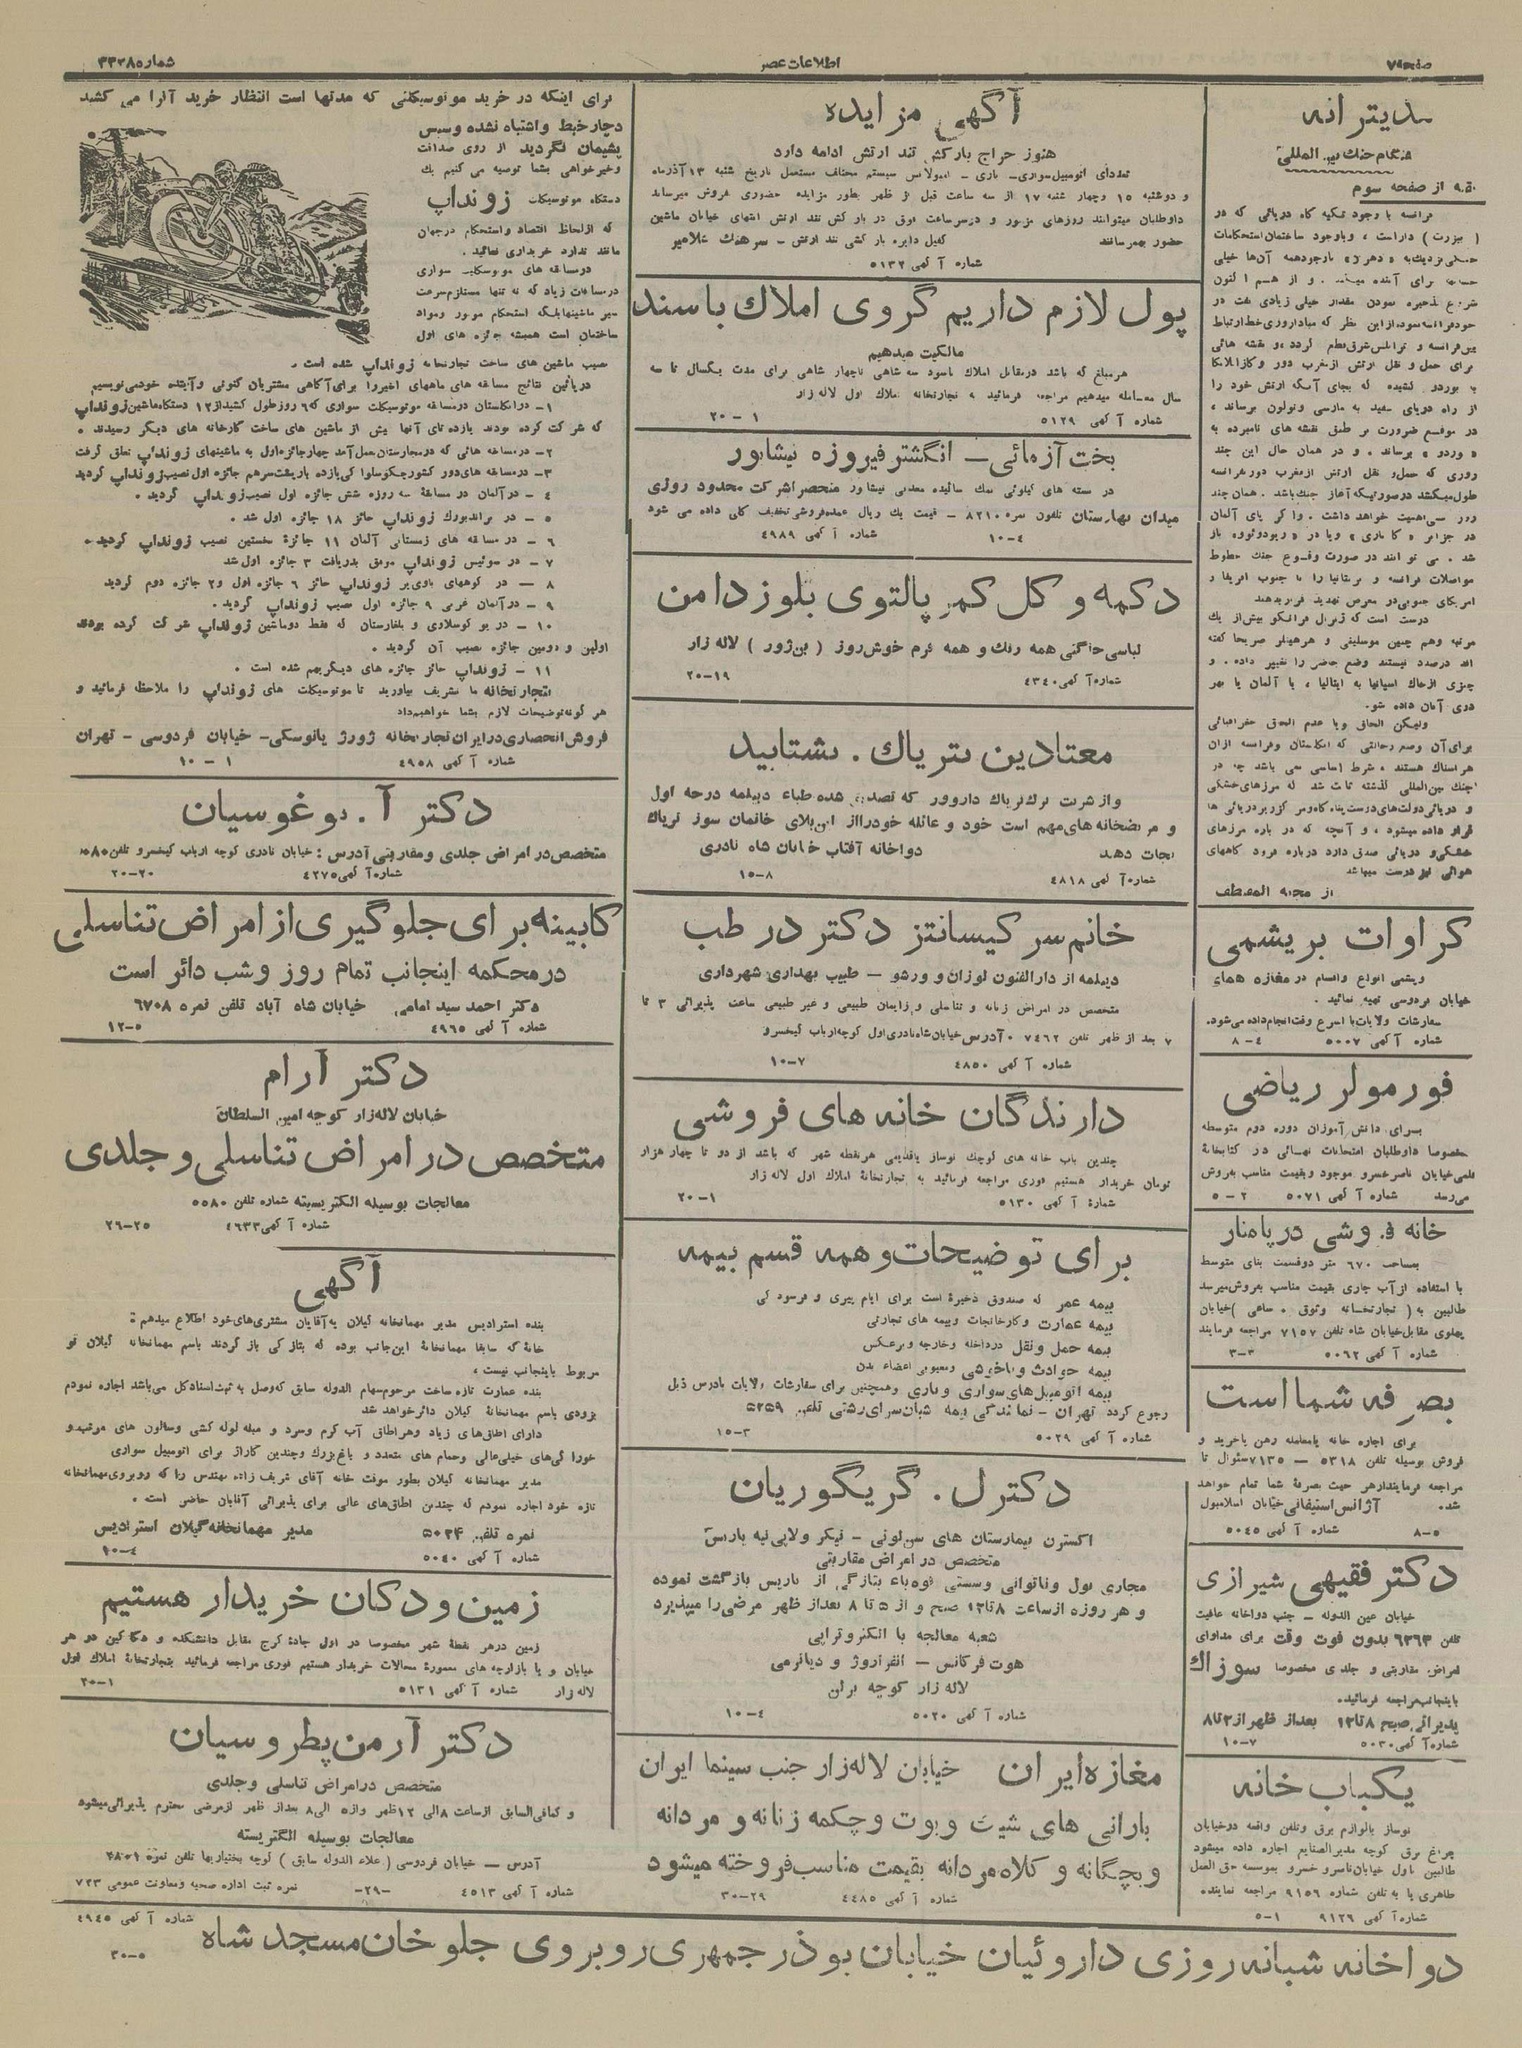 صفحه ۷
اطلاعات عصر
شماره ۳۳۳۸
مدیترانه
هنگام جنك بین المللی
بقیه از صفحه سوم
فرانسه با وجود تکیه گاه دریائی که در
( بیزرت ) داراست ، وباوجود ساختمان استحکامات
برای آینده
شروع بذخیره نمودن مقدار خیلی زیادی نفت در
برای حمل و نقل ارتش از مغرب دور
از راه دریای سفید به مارسی وتولون برساند ،
در موقع ضرورت بر طبق نقشه های نامبرده به
« وردو » برساند . و در همان حال این چند
روزی که حمل و نقل ارتش از مغرب دور بفرانسه
طول میکشد در صورتیکه آغاز جنك باشد . همان چند
شد . می توانند در صورت وقوع جنك خطوط
مواصلات فرانسه و بریتانیا را با جنوب افریقا و
امریکای جنوبی در معرض تهدید قرار بدهند
درست است که ژنرال فرانکو بیش از یك
مرتبه وهم چنین موسلینی و هر هیتلر صریحا گفته
اند درصدد نیستند وضع حاضر را تغییر داده . و
چیزی از خاك اسپانیا به ایتالیا ، یا آلمان یا بهر
ولیکن الحاق ویا عدم الحاق جغرافیائی
هراسناك هستند . شرط اساسی نمی باشد چه در
جنك بین المللی گذشته ثابت شد که مرزهای خشکی
قرار داده میشود ، و آنچه که در باره مرزهای
خشکی و دریائی صدق دارد درباره فرود گاههای
هوائی نیز درست میباشد
از مجله المقتطف
کراوات بریشمی
وپشمی انواع واقسام در مغازه همای
خیابان فردوسی تهیه نمائید .
سفارشات ولایات با اسرع وقت انجام داده می شود.
شماره آگهی ۵۰۰۷ ۴-۸
فورمولر ریاضی
برای دانش آموزان دوره دوم متوسطه
مخصوصا داوطلبان امتحانات نهائی در کتابخانۀ
علمی خیابان ناصر خسرو موجود وبقیمت مناسب بفروش
می رسد شماره آگهی ۵۰۷۱ ۲-۵
خانه فروشی در پامنار
بمساحت ۶۷۰ متر دوقسمت بنای متوسط
با استفاده از آب جاری بقیمت مناسب بفروش میرسد
طالبین به ( تجارتخانه وثوق . ساعی ) خیابان
پهلوی مقابل خیابان شاه تلفن ۷۱۵۷ مراجعه فرمایند
شماره آگهی ۵۰۶۲ ۳-۳
بصرفه شما است
برای اجاره خانه یا معامله رهن یا خرید و
فروش بوسیله تلفن ۵۳۱۸ — ۷۱۳۵ سئوال تا
مراجعه فرمایند از هر حیث بصرفۀ شما تمام خواهد
شد. آژانس استیفانی خیابان اسلامبول
شماره آگهی ۵۰۴۵ ۵-۸
دکتر فقیهی شیرازی
خیابان عین الدوله — جنب دواخانه عافیت
تلفن ۶۳۶۳ بدون فوت وقت برای مداوای
امراض مقاربتی و جلدی مخصوصا سوزاك
باینجانب مراجعه فرمائید.
پذیرائی صبح ۸ تا ۱۲ بعد از ظهر از ۲ تا ۸
شماره آگهی ۵۰۳۰ ۷-۱۰
یکباب خانه
نوساز بالوازم برق وتلفن واقعه در خیابان
چراغ برق کوچه مدیر الصنایع اجاره داده میشود
طالبین باول خیابان ناصر خسرو بموسسه حق العمل
طاهری یا به تلفن شماره ۹۱۵۶ مراجعه نمایند
شماره آگهی ۹۱۲۶ ۱-۵
آگهی مزایده
هنوز حراج بارکش تند ارتش ادامه دارد
تعدادی اتومبیل سواری- باری - امبولانس سیستم مختلف مستعمل بتاریخ شنبه ۱۳ آذرماه
و دوشنبه ۱۵ وچهار شنبه ۱۷ از سه ساعت قبل از ظهر بطور مزایده حضوری فروش میرساند
داوطلبان میتوانند روزهای مزبور و در سر ساعت فوق در بار کش تند ارتش انتهای خیابان ماشین
حضور بهمرسانند کفیل دایره بار کشی تند ارتش - سرهنك غلامیر
شماره آگهی ۵۱۳۲
پول لازم داریم گروی املاك باسند
مالکیت میدهیم
هر مبلغ که باشد در مقابل املاك باسود سه شاهی تاچهار شاهی برای مدت یکسال تا سه
سال معامله میدهیم مراجعه فرمائید به تجارتخانه املاك اول لاله زار
شماره آگهی ۵۱۲۹ ۱-۲۰
بخت آزمائی- انگشتر فیروزه نیشابور
در بسته های کیلوئی نمك سائیده معدنی نیشابور منحصر اشرکت محدود روزی
میدان بهارستان تلفون نمره ۸۲۱۰ - قیمت یك ریال عمده فروشی تخفیف کلی داده می شود
شماره آگهی ۴۹۸۹ ۴-۱۰
دکمه و گل کمر پالتوی بلوز دامن
لباسی خانگی همه رنك و همه فرم خوش روز ( بن ژور ) لاله زار
شماره آگهی ۴۳۴۰ ۱۹-۲۰
معتادین بتریاك . بشتابید
واز شربت ترك تریاك داروور که تصدیق شده طباء دیپلمه درجه اول
و مریضخانه های مهم است خود و عائله خود را از این بلای خانمان سوز تریاك
نجات دهید دواخانه آفتاب خیابان شاه نادری
شماره آگهی ۴۸۱۸ ۸-۱۵
خانم سرکیسانتز دکتر در طب
دیپلمه از دارالفنون لوزان و ورشو — طبیب بهداری شهرداری
متخصص در امراض زنانه و تناسلی و زایمان طبیعی و غیر طبیعی ساعت پذیرائی ۳ تا
۷ بعد از ظهر تلفن ۷۴۶۲ . آدرس خیابان شاه نادری اول کوچه ارباب کیخسرو
شماره آگهی ۴۸۵۰ ۷-۱۰
دارندگان خانه های فروشی
چندین باب خانه های کوچك نوساز یا قدیمی هر نقطه شهر که باشد از دو تا چهار هزار
تومان خریدار هستیم فوری مراجعه فرمائید به تجارتخانۀ املاك اول لاله زار
شمارۀ آگهی ۵۱۳۰ ۱-۲۰
برای توضیحات و همه قسم بیمه
بیمه عمر که صندوق ذخیرۀ است برای ایام پیری و فرسودگی
بیمه عمارت وکارخانجات وبیمه های تجارتی
بیمه حمل ونقل در داخله و خارجه و بر عکس
بیمه حوادث وناخوشی ومعیوبی اعضاء بدن
بیمه اتومبیل های سواری و باری وهمچنین برای سفارشات ولایات بآدرس ذیل
رجوع گردد تهران - نمایندگی بیمه شبان سرای رشتی تلفن ۵۲۵۹
شماره آگهی ۵۰۲۹ ۳-۱۵
دکتر ل . گریگوریان
اکسترن بیمارستان های سن لوئی - نیکر ولاپی تیه پاریس
متخصص در امراض مقاربتی
مجاری بول وناتوانی وسستی قوه باء بتازگی از پاریس بازگشت نموده
و هر روزه از ساعت ۸ تا ۱۲ صبح و از ۵ تا ۸ بعد از ظهر مرضی را میپذیرد
شعبه معالجه با الکتروتراپی
هوت فرکانس - انفراروژ و دیاترمی
لاله زار کوچه برلن
شماره آگهی ۵۰۲۰ ۴-۱۰
مغازه ایران خیابان لاله زار جنب سینما ایران
بارانی های شیك وبوت وچکمه زنانه و مردانه
وبچگانه و کلاه مردانه بقیمت مناسب فروخته میشود
شماره آگهی ۴۴۸۵ ۲۹-۳۰
برای اینکه در خرید موتوسیکلتی که مدتها است انتظار خرید آنرا می کشید
دچار خبط واشتباه نشده وسپس
پشیمان نگردید از روی صداقت
وخیرخواهی بشما توصیه می کنیم یك
دستگاه موتوسیکلت زونداپ
که از لحاظ اقتصاد واستحکام در جهان
مانند ندارد خریداری نمائید .
در مسابقه های موتوسیکلت سواری
در مسافات زیاد که نه تنها مستلزم سرعت
سیر ماشینها بلکه استحکام موتور ومواد
ساختمان است همیشه جائزه های اول
نصیب ماشین های ساخت تجارتخانه زونداپ شده است .
در پائین نتائج مسابقه های ماههای اخیر را برای آگاهی مشتریان کنونی وآینده خود می نویسیم
۱- در انگلستان در مسابقه موتوسیکلت سواری که ۶ روز طول کشید از ۱۲ دستگاه ماشین زونداپ
که شرکت کرده بودند یازده تای آنها پیش از ماشین های ساخت کارخانه های دیگر رسیدند .
۲- در مسابقه هائی که در مجارستان بعمل آمد چهار جائزه اول به ماشینهای زونداپ تعلق گرفت
۴ - در آلمان در مسابقۀ سه روزه شش جائزه اول نصیب زونداپ گردید .
۵ - در براندبورك زونداپ حائز ۱۸ جائزه اول شد .
۶ - در مسابقه های زمستانی آلمان ۱۱ جائزۀ نخستین نصیب زونداپ گردید.
۷ - در سوئیس زونداپ موفق بدریافت ۳ جائزه اول شد
۸ — در کوههای باویر زونداپ حائز ۶ جائزه اول و ۲ جائزه دوم گردید
۹ - در آلمان غربی ۹ جائزه اول نصیب زونداپ گردید .
۱۰ - در یوگوسلاوی و بلغارستان که فقط دو ماشین زونداپ شرکت کرده بودند
اولین و دومین جائزه نصیب آن گردید .
۱۱ - زونداپ حائز جائزه های دیگر بهم شده است .
بتجارتخانه ما تشریف بیاورید تا موتوسیکلت های زونداپ را ملاحظه فرمائید و
هر گونه توضیحات لازم بشما خواهیم داد
فروش انحصاری در ایران تجارتخانه ژورژ یانوسکی- خیابان فردوسی - تهران
شماره آگهی ۴۹۵۸ ۱-۱۰
دکتر آ . بوغوسیان
متخصص در امراض جلدی و مقاربتی آدرس : خیابان نادری کوچه ارباب کیخسرو تلفن
شماره آگهی ۴۲۷۵ ۲۰-۲۰
کابینه برای جلوگیری از امراض تناسلی
در محکمه اینجانب تمام روز و شب دائر است
دکتر احمد سید امامی خیابان شاه آباد تلفن نمره ۶۷۰۸
شماره آگهی ۴۹۶۵ ۵-۱۲
دکتر آرام
خیابان لاله زار کوچه امین السلطان
متخصص در امراض تناسلی و جلدی
معالجات بوسیله الکتریسیته شماره تلفن ۵۵۸۰
شماره آگهی ۴۶۳۳ ۲۵-۲۶
آگهی
بنده استرادیس مدیر مهمانخانه گیلان به آقایان مشتری های خود اطلاع میدهم :
خانۀ که سابقا مهمانخانۀ این جانب بوده که بتازگی باز گردند باسم مهمانخانه گیلان نو
مربوط باینجانب نیست ،
بنده عمارت تازه ساخت مرحوم سهام الدوله سابق که وصل به ثبت اسناد کل می باشد اجاره نمودم
بزودی باسم مهمانخانۀ گیلان دائر خواهد شد
دارای اطاق های زیاد وهر اطاقی آب گرم وسرد و مبله لوله کشی وسالون های مرتب و
خوراکی های خیلی عالی وحمام های متعدد و باغ بزرك وچندین گاراژ برای اتومبیل سواری
مدیر مهمانخانه گیلان بطور موقت خانه آقای شریف زاده مهندس را که روبروی مهمانخانه
تازه خود اجاره نمودم که چندین اطاق های عالی برای پذیرائی آقایان حاضر است .
نمره تلفن ۵۰۲۴ مدیر مهمانخانه گیلان استرادیس
شماره آگهی ۵۰۴۰ ۴-۱۰
زمین و دکان خریدار هستیم
زمین در هر نقطۀ شهر مخصوصا در اول جادۀ کرج مقابل دانشکده و دکاکین در هر
خیابان و یا بازارچه های معمورۀ محالات خریدار هستیم فوری مراجعه فرمائید بتجارتخانۀ املاك اول
لاله زار شماره آگهی ۵۱۳۱ ۱-۲۰
دکتر آرمن پطروسیان
متخصص در امراض تناسلی و جلدی
و کمافی السابق از ساعت ۸ الی ۱۲ ظهر واز ۵ الی ۸ بعد از ظهر از مرضی محترم پذیرائی میشود
معالجات بوسیله الکتریسته
آدرس — خیابان فردوسی ( علاء الدوله سابق ) کوچه بختیاریها تلفن نمره
شماره آگهی ۴۵۱۳ -۲۹- نمره ثبت اداره صحیه ومعاونت عمومی ۷۲۳
شماره آگهی ۴۹۴۵
دواخانه شبانه روزی داروئیان خیابان بوذرجمهری روبروی جلوخان مسجد شاه
۵-۳۰